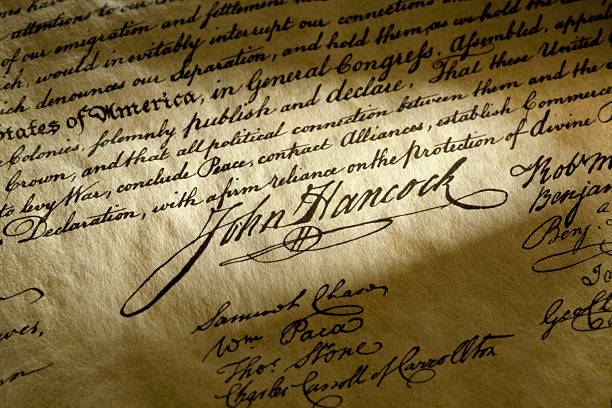 attentions to our
of our emigration and settlement
ch, would inevitably interrupt our connections
ich denounces our Separation, and hold them, as we hold the
States of America, in General Congress, Assembled, appeal
Colonies, solemnly publish and declare, That these United
Crown, and that all political connection between them and the
to levy War, conclude Peace, contract Alliances, establish Commerce
Declaration, with a firm reliance on the protection of divine
John Hancock
Rob M
Benjam
Benj.
Geo
Samuel Chase
Wm Paca
Thos. Stone
Charles Carroll of Carrollton